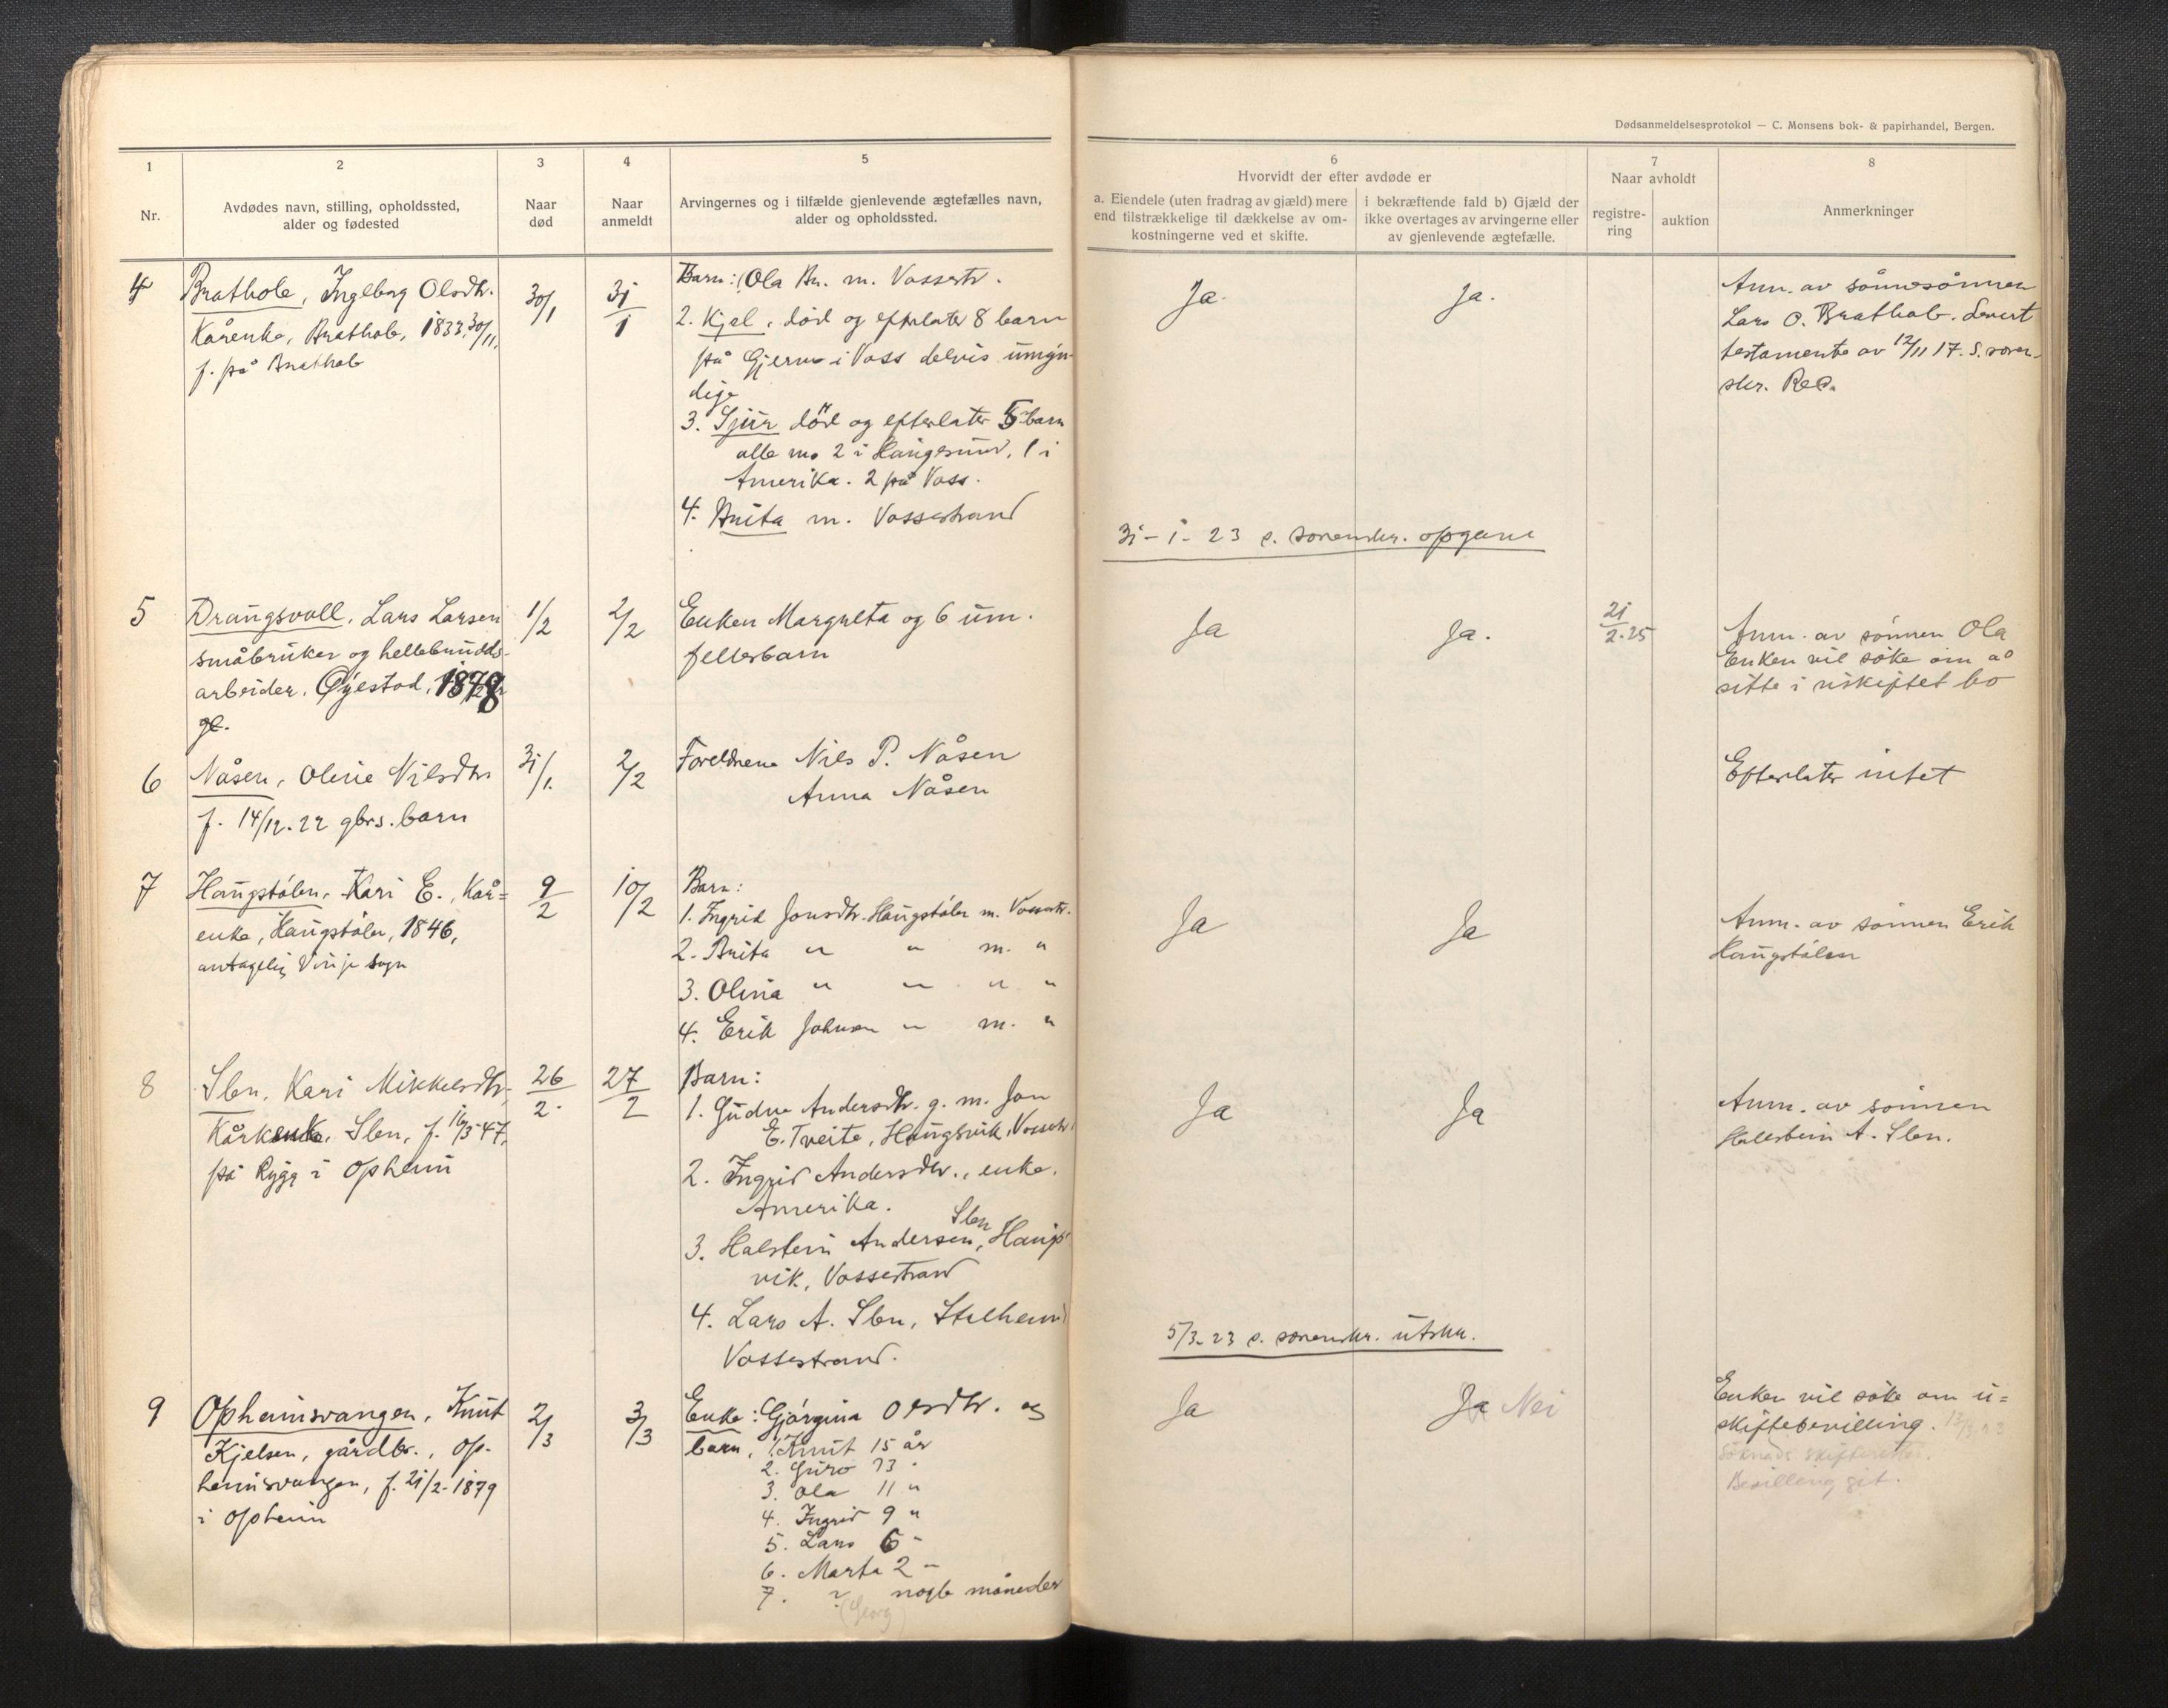 Dødsanmeldelsesprotokol — C. Monsens bok- & papirhandel, Bergen.
1
Nr.
2
Avdødes navn, stilling, opholdssted,
alder og fødested
3
Naar
død
4
Naar
anmeldt
5
Arvingernes og i tilfælde gjenlevende ægtefælles navn,
alder og opholdssted.
6
Hvorvidt der efter avdøde er
a. Eiendele (uten fradrag av gjæld) mere
end tilstrækkelige til dækkelse av om-
kostningerne ved et skifte.
i bekræftende fald b) Gjæld der
ikke overtages av arvingerne eller
av gjenlevende ægtefælle.
7
Naar avholdt
registre-
ring
auktion
8
Anmerkninger
4
Brathole, Ingleborg Olsdtr.
Kårenke, Brathole, 1833 30/11,
f. på Brathole
30/1
31/1
Barn: Ola Br. m. Vossestr.
2. Kjel, død og efterlater 8 barn
på Gjerme i Voss delvis umyn-
dige
3. Sjur død og efterlater 5 barn
alle m. 2 i Haugesund, 1 i
Amerika. 2 på Voss.
4. Brita m. Vossestrand
Ja.
Ja.
Anm. av sønnesønnen
Lars O. Brathole. Levert
testamente av 12/11 17. S. soren-
skr. Rec.
31-1-23 s. sorenskr. opgave
5
Drangsvoll, Lars Larsen
småbruker og hellebrudds-
arbeider, Øyestad, 1878
gl.
1/2
2/2
Enken Margreta og 6 um.
fellesbarn
Ja
Ja.
21/2.25
Anm. av sønnen Ola
Enken vil søke om å
sitte i uskiftet bo
6
Nåsen, Oline Nilsdtr
f. 14/12.22 gbrs. barn
31/1.
2/2
Foreldrene Nils P. Nåsen
Anna Nåsen
Efterlater intet
7
Haugstølen, Kari E., Kår=
enke, Haugstølen, 1846,
antagelig Vinje sogn
9/2
10/2
Barn:
1. Ingrid Jonsdtr. Haugstølen m. Vossestr.
2. Brita " " m. "
3. Olina " " " "
4. Erik Johnsen " m. "
Ja
Ja
Anm. av sønnen Erik
Haugstølen
8
Slen, Kari Mikkelsdtr,
Kårkenke, Slen, f. 16/3 47,
på Rygg i Opheim
26/2.
27/2
Barn:
1. Gudve Andersdtr. g. m. Jon
E. Tveite, Haugsvik, Vossestr
2. Ingrid Andersdtr., enke,
Amerika.
3. Halstein Andersen Slen, Haugs
vik, Vossestrand
4. Lars A. Slen, Stalheim
Vossestrand.
Ja
Ja
Anm. av sønnen
Halstein A. Slen.
5/3 23 s. sorenskr. utskr.
9
Opheimsvangen, Knut
Kjelsen, gårdbr., Op-
heimsvangen, f. 21/2-1879
i Opheim
2/3
3/3
Enke: Gjørgina Olsdtr. og
barn, 1. Knut 15 år
2. Guro 13 "
3. Ola 11 "
4. Ingrid 9 "
5. Lars 6 "
6. Marta 2 "
7. ? nogle måneder
(Georg)
Ja
Ja Nei
Enken vil søke om u=
skiftebevilling. 13/3 23
Søknads skifteretten.
Bevilling git.